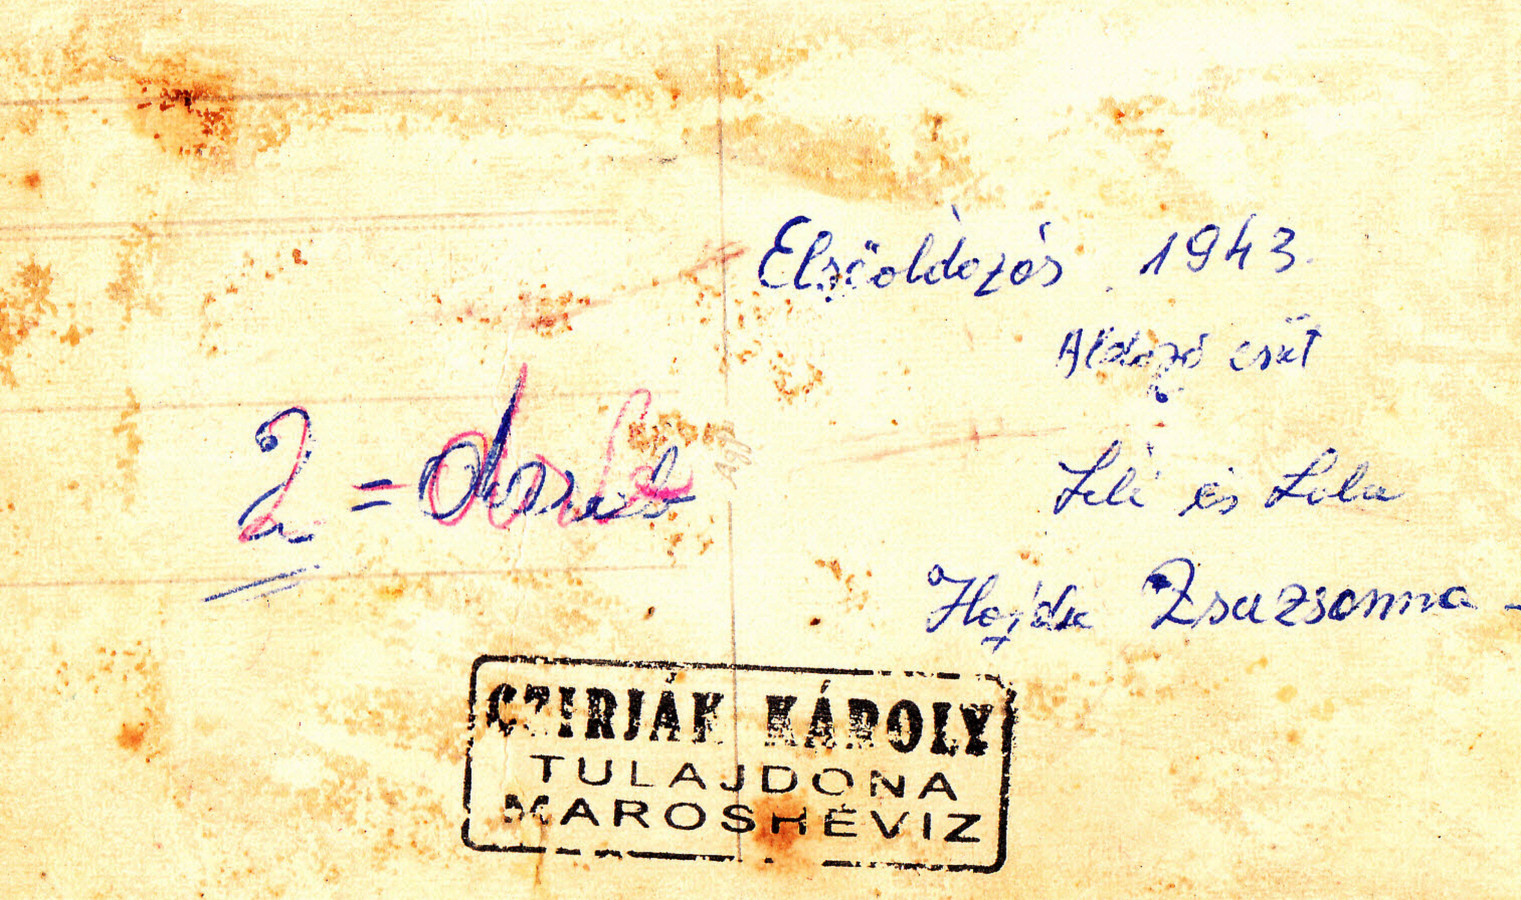 Elsőoldozás 1943.
Áldozó csüt
2 = darab
Lili és Lola
Hajdu Zsuzsanna -
CZIRJÁK KÁROLY
TULAJDONA
MAROSHÉVIZ